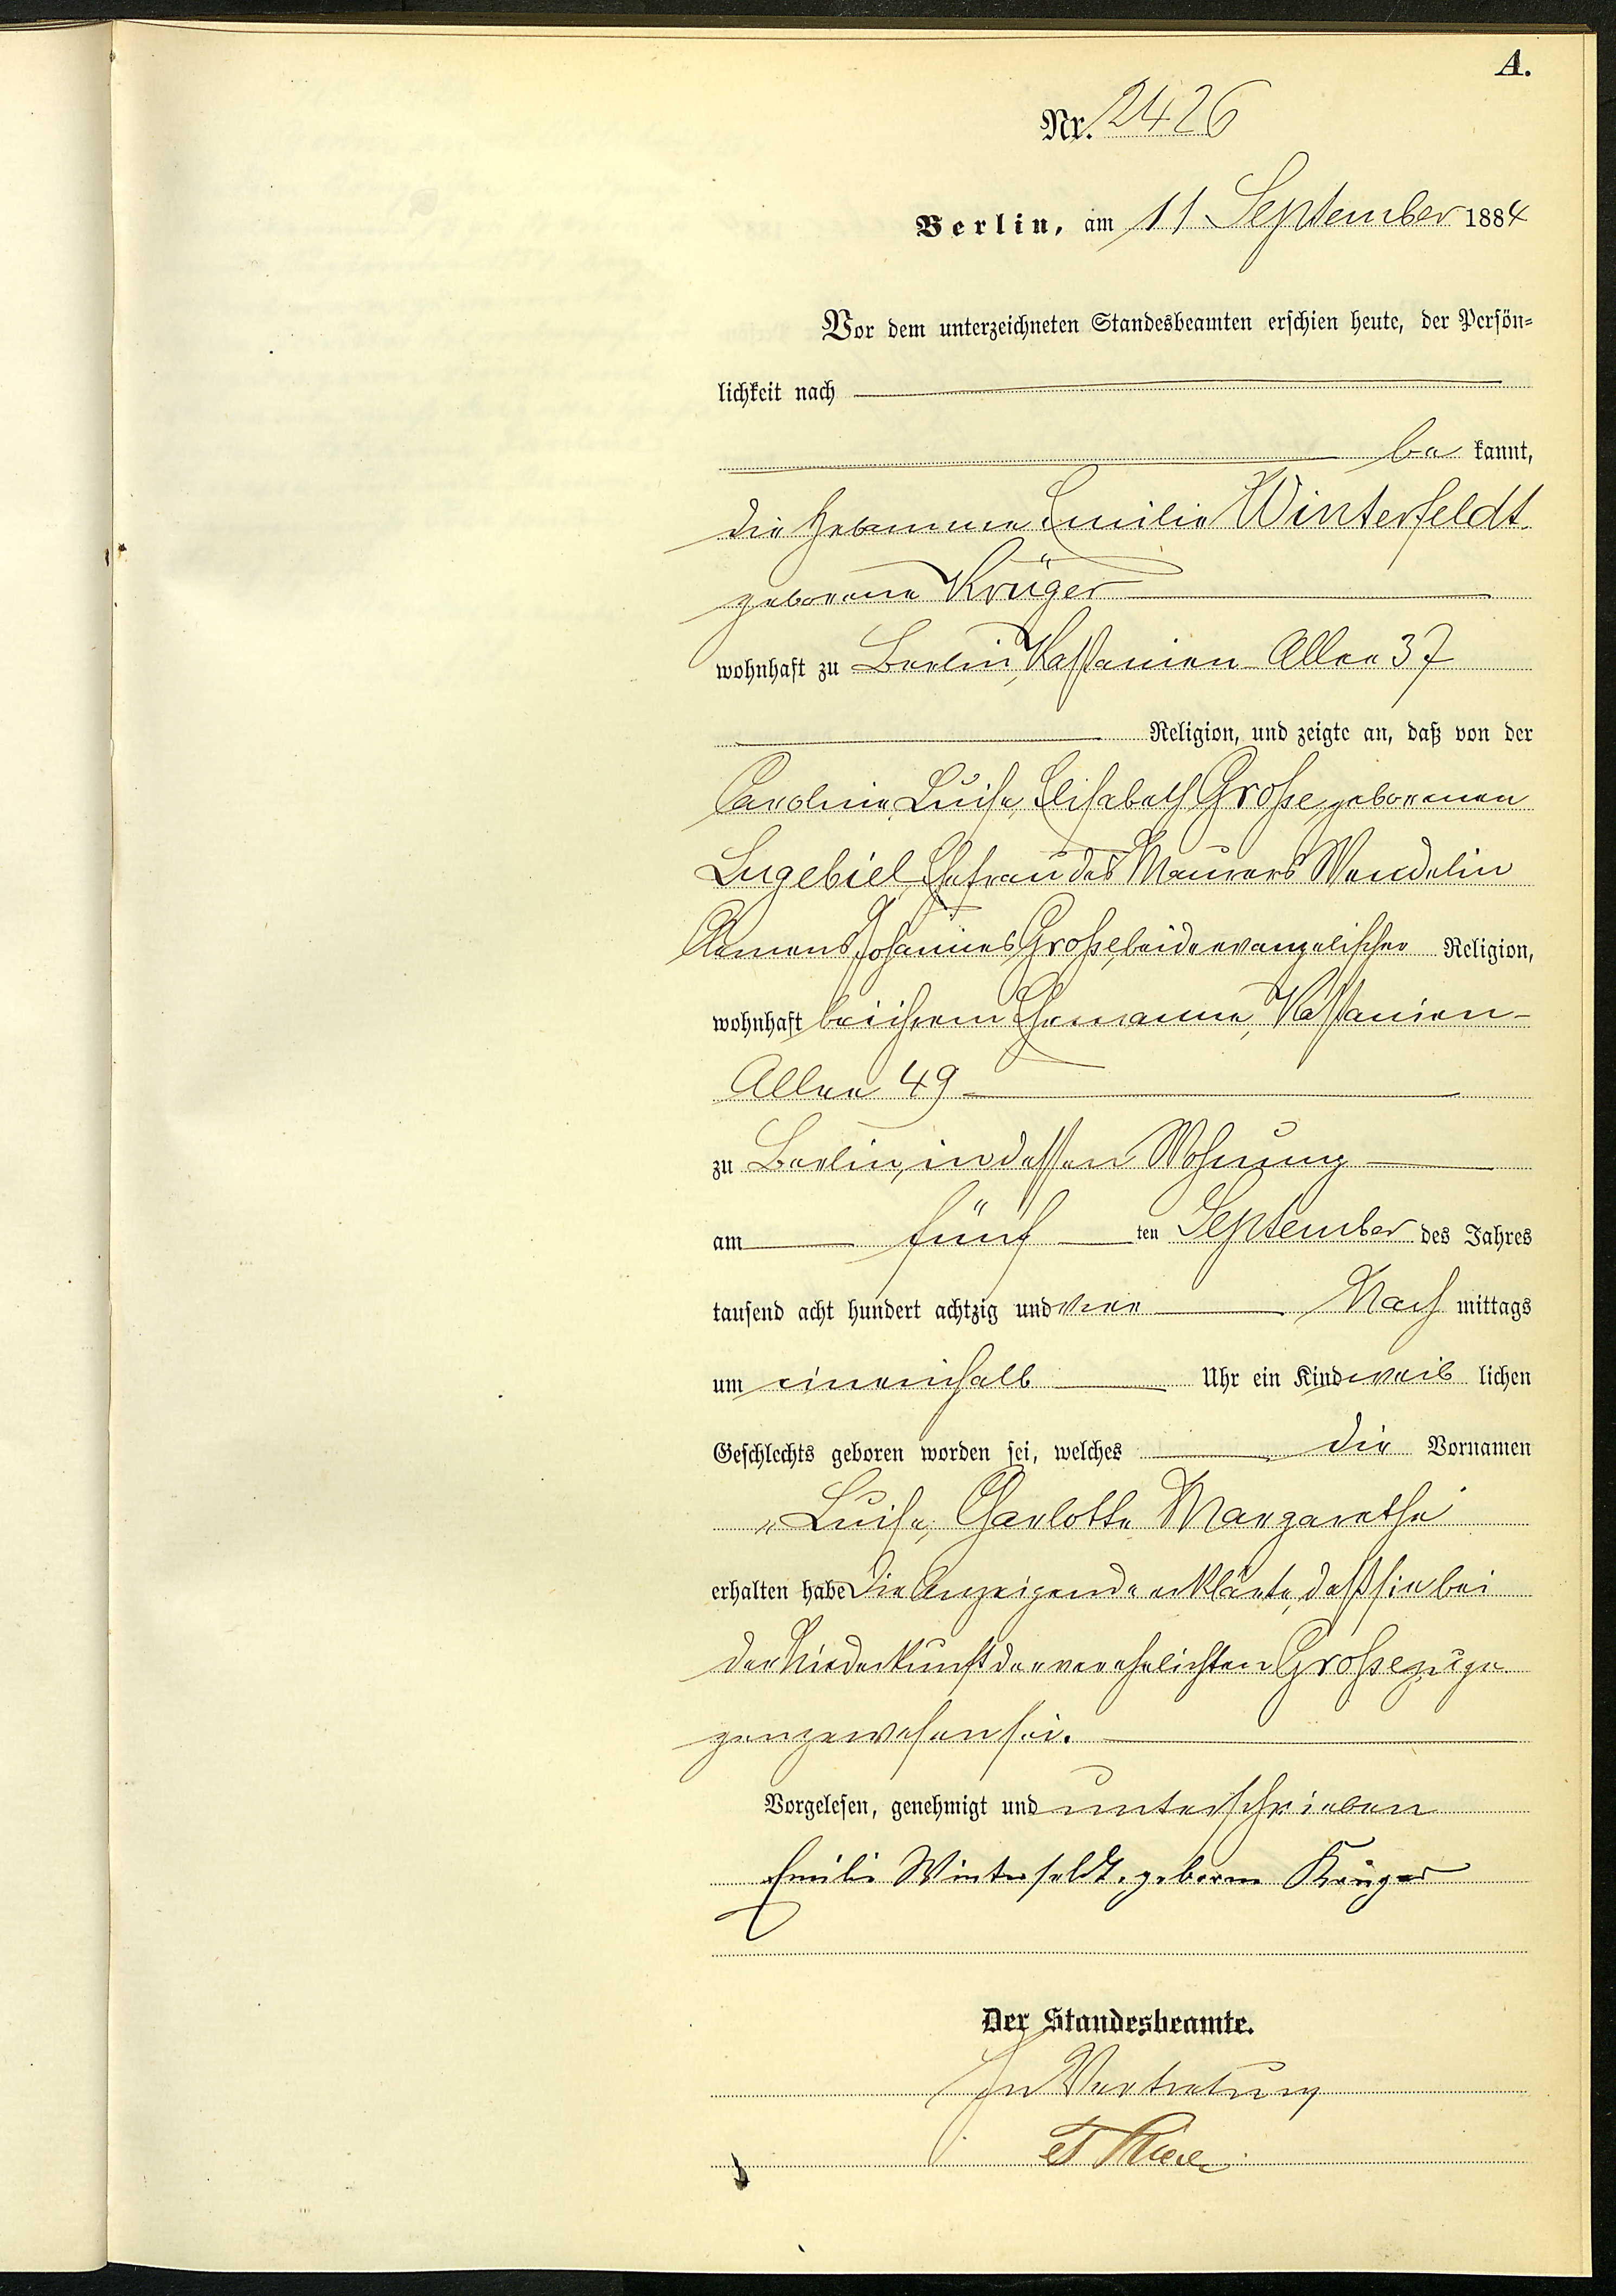 A.
Nr. 2426
Berlin, am 11 September 1884
Vor dem unterzeichneten Standesbeamten erschien heute, der Persön-
lichkeit nach
be kannt,
die Hebamme Emilie Winterfeldt
geborene Krüger
wohnhaft zu Berlin, Kastanien-Allee 37
Religion, und zeigte an, daß von der
Caroline, Luise, Elisabeth Große, geborenen
Lugebiel, Ehefrau des Maurers Wendelin
Clemens Johannes Große, beide evangelischer Religion,
wohnhaft bei ihrem Ehemanne, Kastanien-
Allee 49
zu Berlin, in dessen Wohnung
am fünf ten September des Jahres
tausend acht hundert achtzig und vier Nach mittags
um eineinhalb Uhr ein Kind weib lichen
Geschlechts geboren worden sei, welches die Vornamen
„Luise, Charlotte Margarethe“
erhalten habe Die Anzeigende erklärte, daß sie bei
der Niederkunft der verehelichten Große zuge
gen gewesen sei.
Vorgelesen, genehmigt und unterschrieben
Emilie Winterfeldt. geborne Krüger
Der Standesbeamte.
In Vertretung